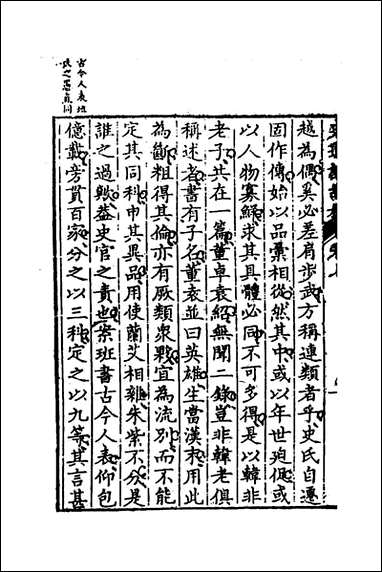 越為偶奚必差肩步武方稱連類者乎史氏自遷
固作傳始以品彙相從然其中或以年世迫促或
以人物寡鮮求其具體必同不可多得是以韓非
老子共在一篇董卓袁紹無聞二錄豈非韓老俱
稱述者書有子名董袁並曰英雄生當漢末用此
為斷粗得其倫亦有厥類衆夥宜為流別而不能
定其同科申其異品用使蘭艾相雜朱紫不分是
誰之過歟蓋史官之責也案班書古今人表仰包
億載旁貫百家分之以三科定之以九等其言甚
古今人表